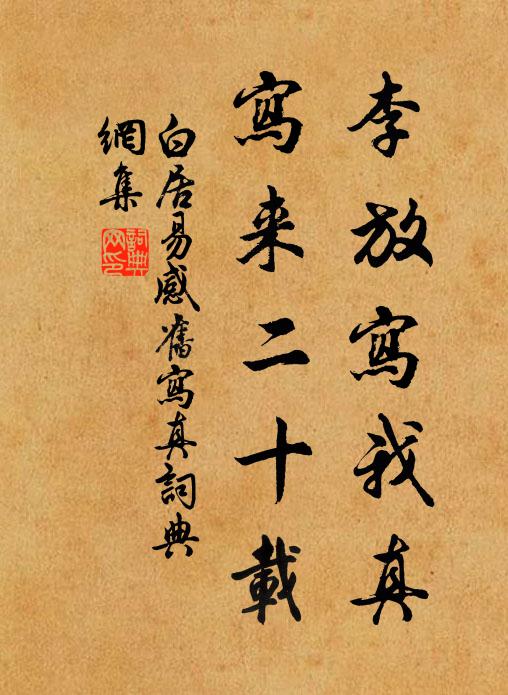 李放寫我真
寫来二十載
白居易感舊寫真詞典
網集
詞典
网印